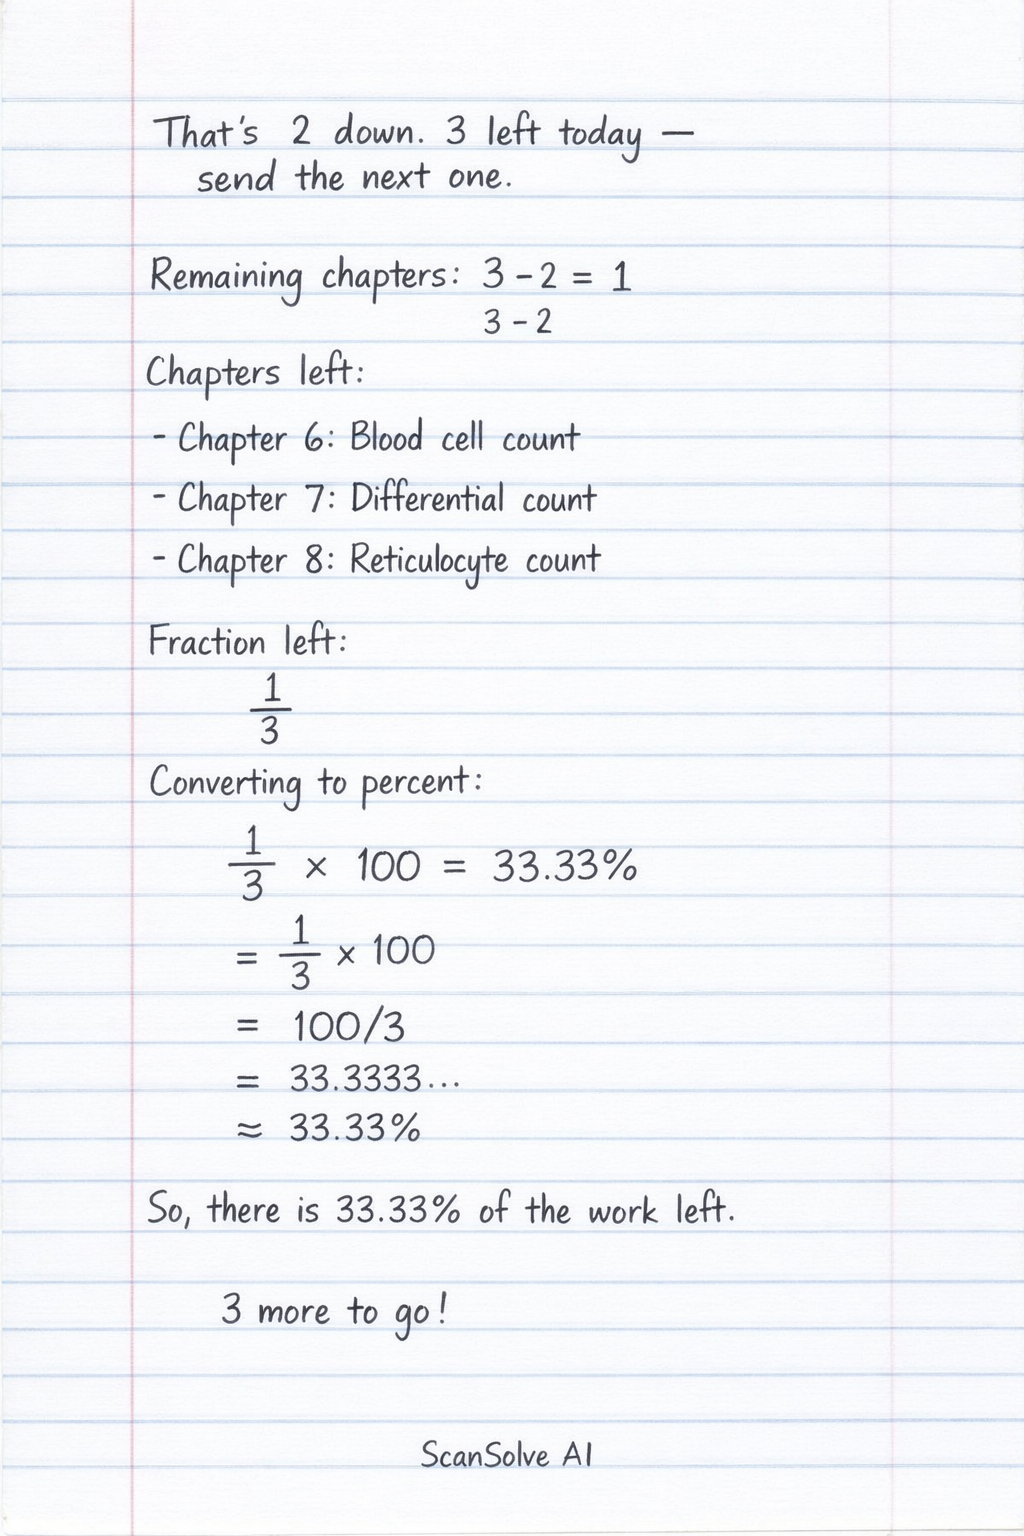 That's 2 down. 3 left today —
send the next one.
Remaining chapters: 3 - 2 = 1
3 - 2
Chapters left:
- Chapter 6: Blood cell count
- Chapter 7: Differential count
- Chapter 8: Reticulocyte count
Fraction left:
1
3
Converting to percent:
1/3 × 100 = 33.33%
= 1/3 × 100
= 100/3
= 33.3333...
≈ 33.33%
So, there is 33.33% of the work left.
3 more to go!
ScanSolve AI